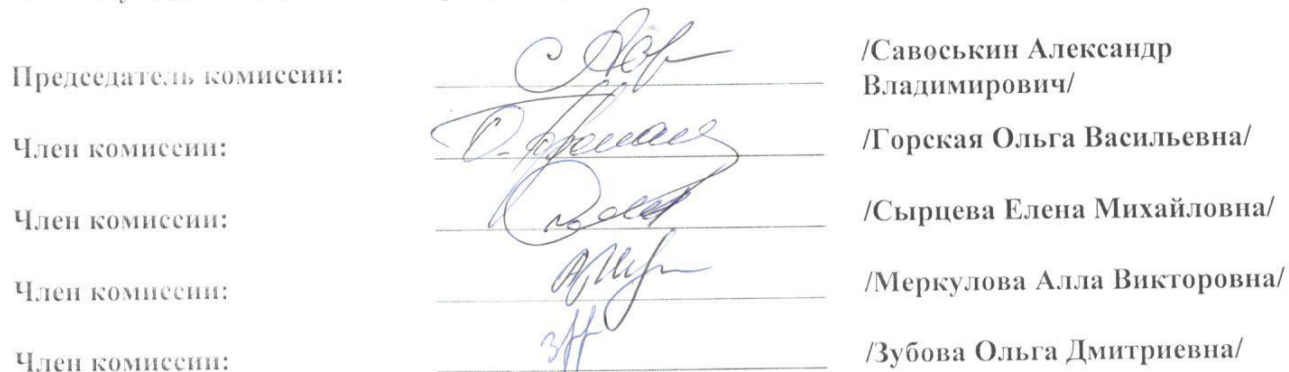 Председатель комиссии: /Савоськин Александр
Владимирович/
Член комиссии: /Горская Ольга Васильевна/
Член комиссии: /Сырцева Елена Михайловна/
Член комиссии: /Меркулова Алла Викторовна/
Член комиссии: /Зубова Ольга Дмитриевна/